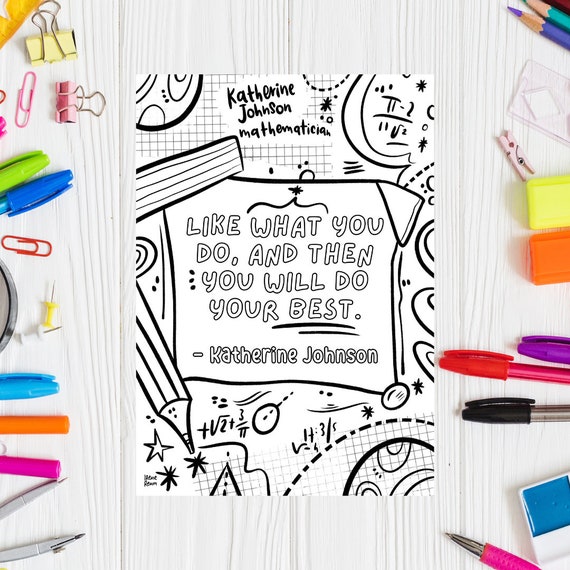 Katherine
Johnson
mathematician
π-2
LIKE WHAT YOU
DO, AND THEN
YOU WILL DO
YOUR BEST.
- Katherine Johnson